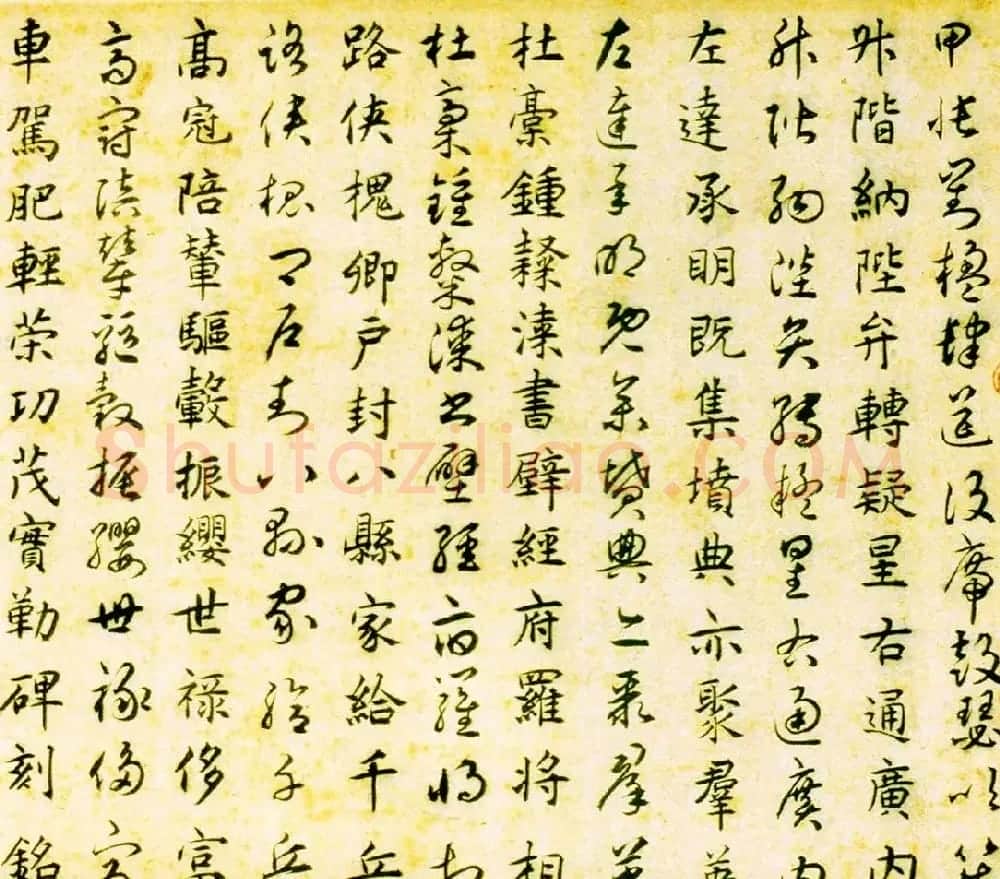 甲帳對楹肆筵設席鼓瑟吹笙
升階納陛弁轉疑星右通廣內
升階納陛弁轉疑星右通廣內
左達承明既集墳典亦聚羣英
左達承明既集墳典亦聚羣英
杜稾鍾隸漆書壁經府羅將相
杜稾鍾隸漆書壁經府羅將相
路俠槐卿戶封八縣家給千兵
路俠槐卿戶封八縣家給千兵
高冠陪輦驅轂振纓世祿侈富
高冠陪輦驅轂振纓世祿侈富
車駕肥輕策功茂實勒碑刻銘
Shufaziliao.COM